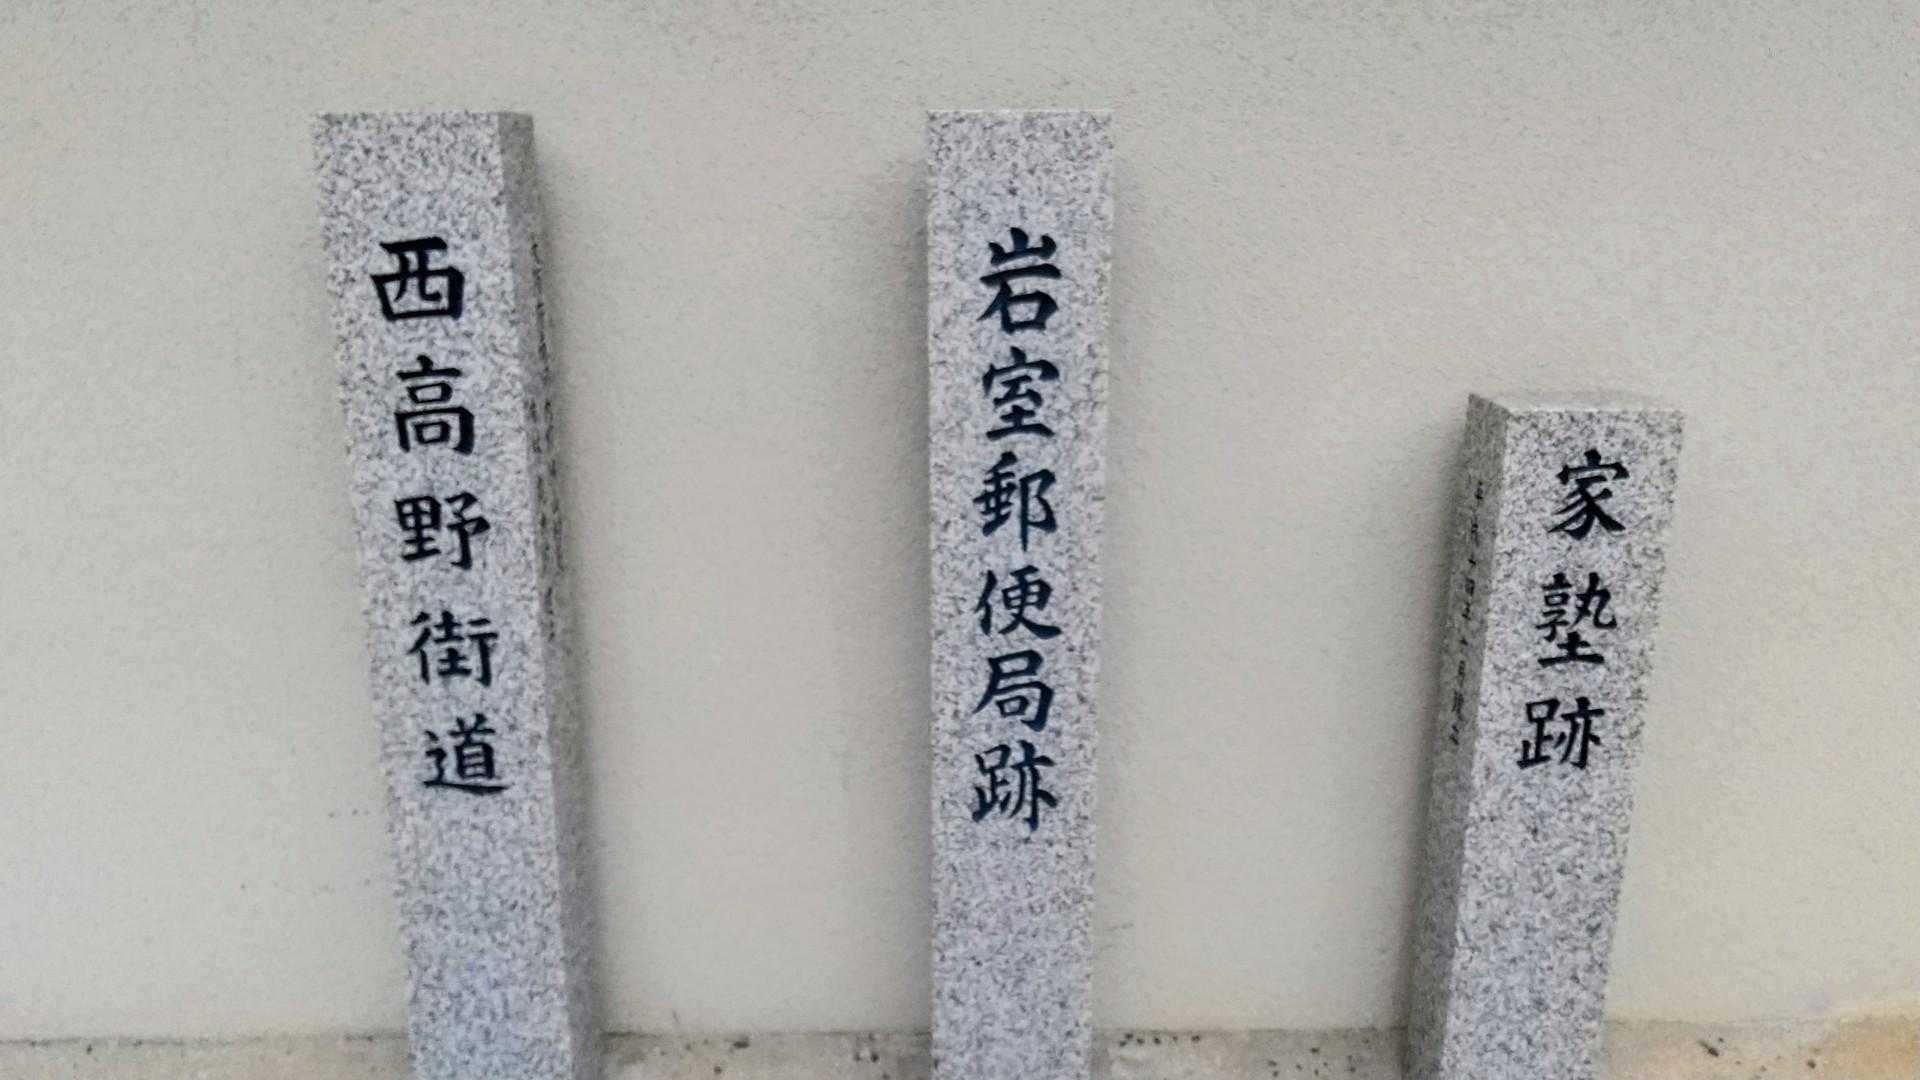 西高野街道
岩室郵便局跡
家塾跡